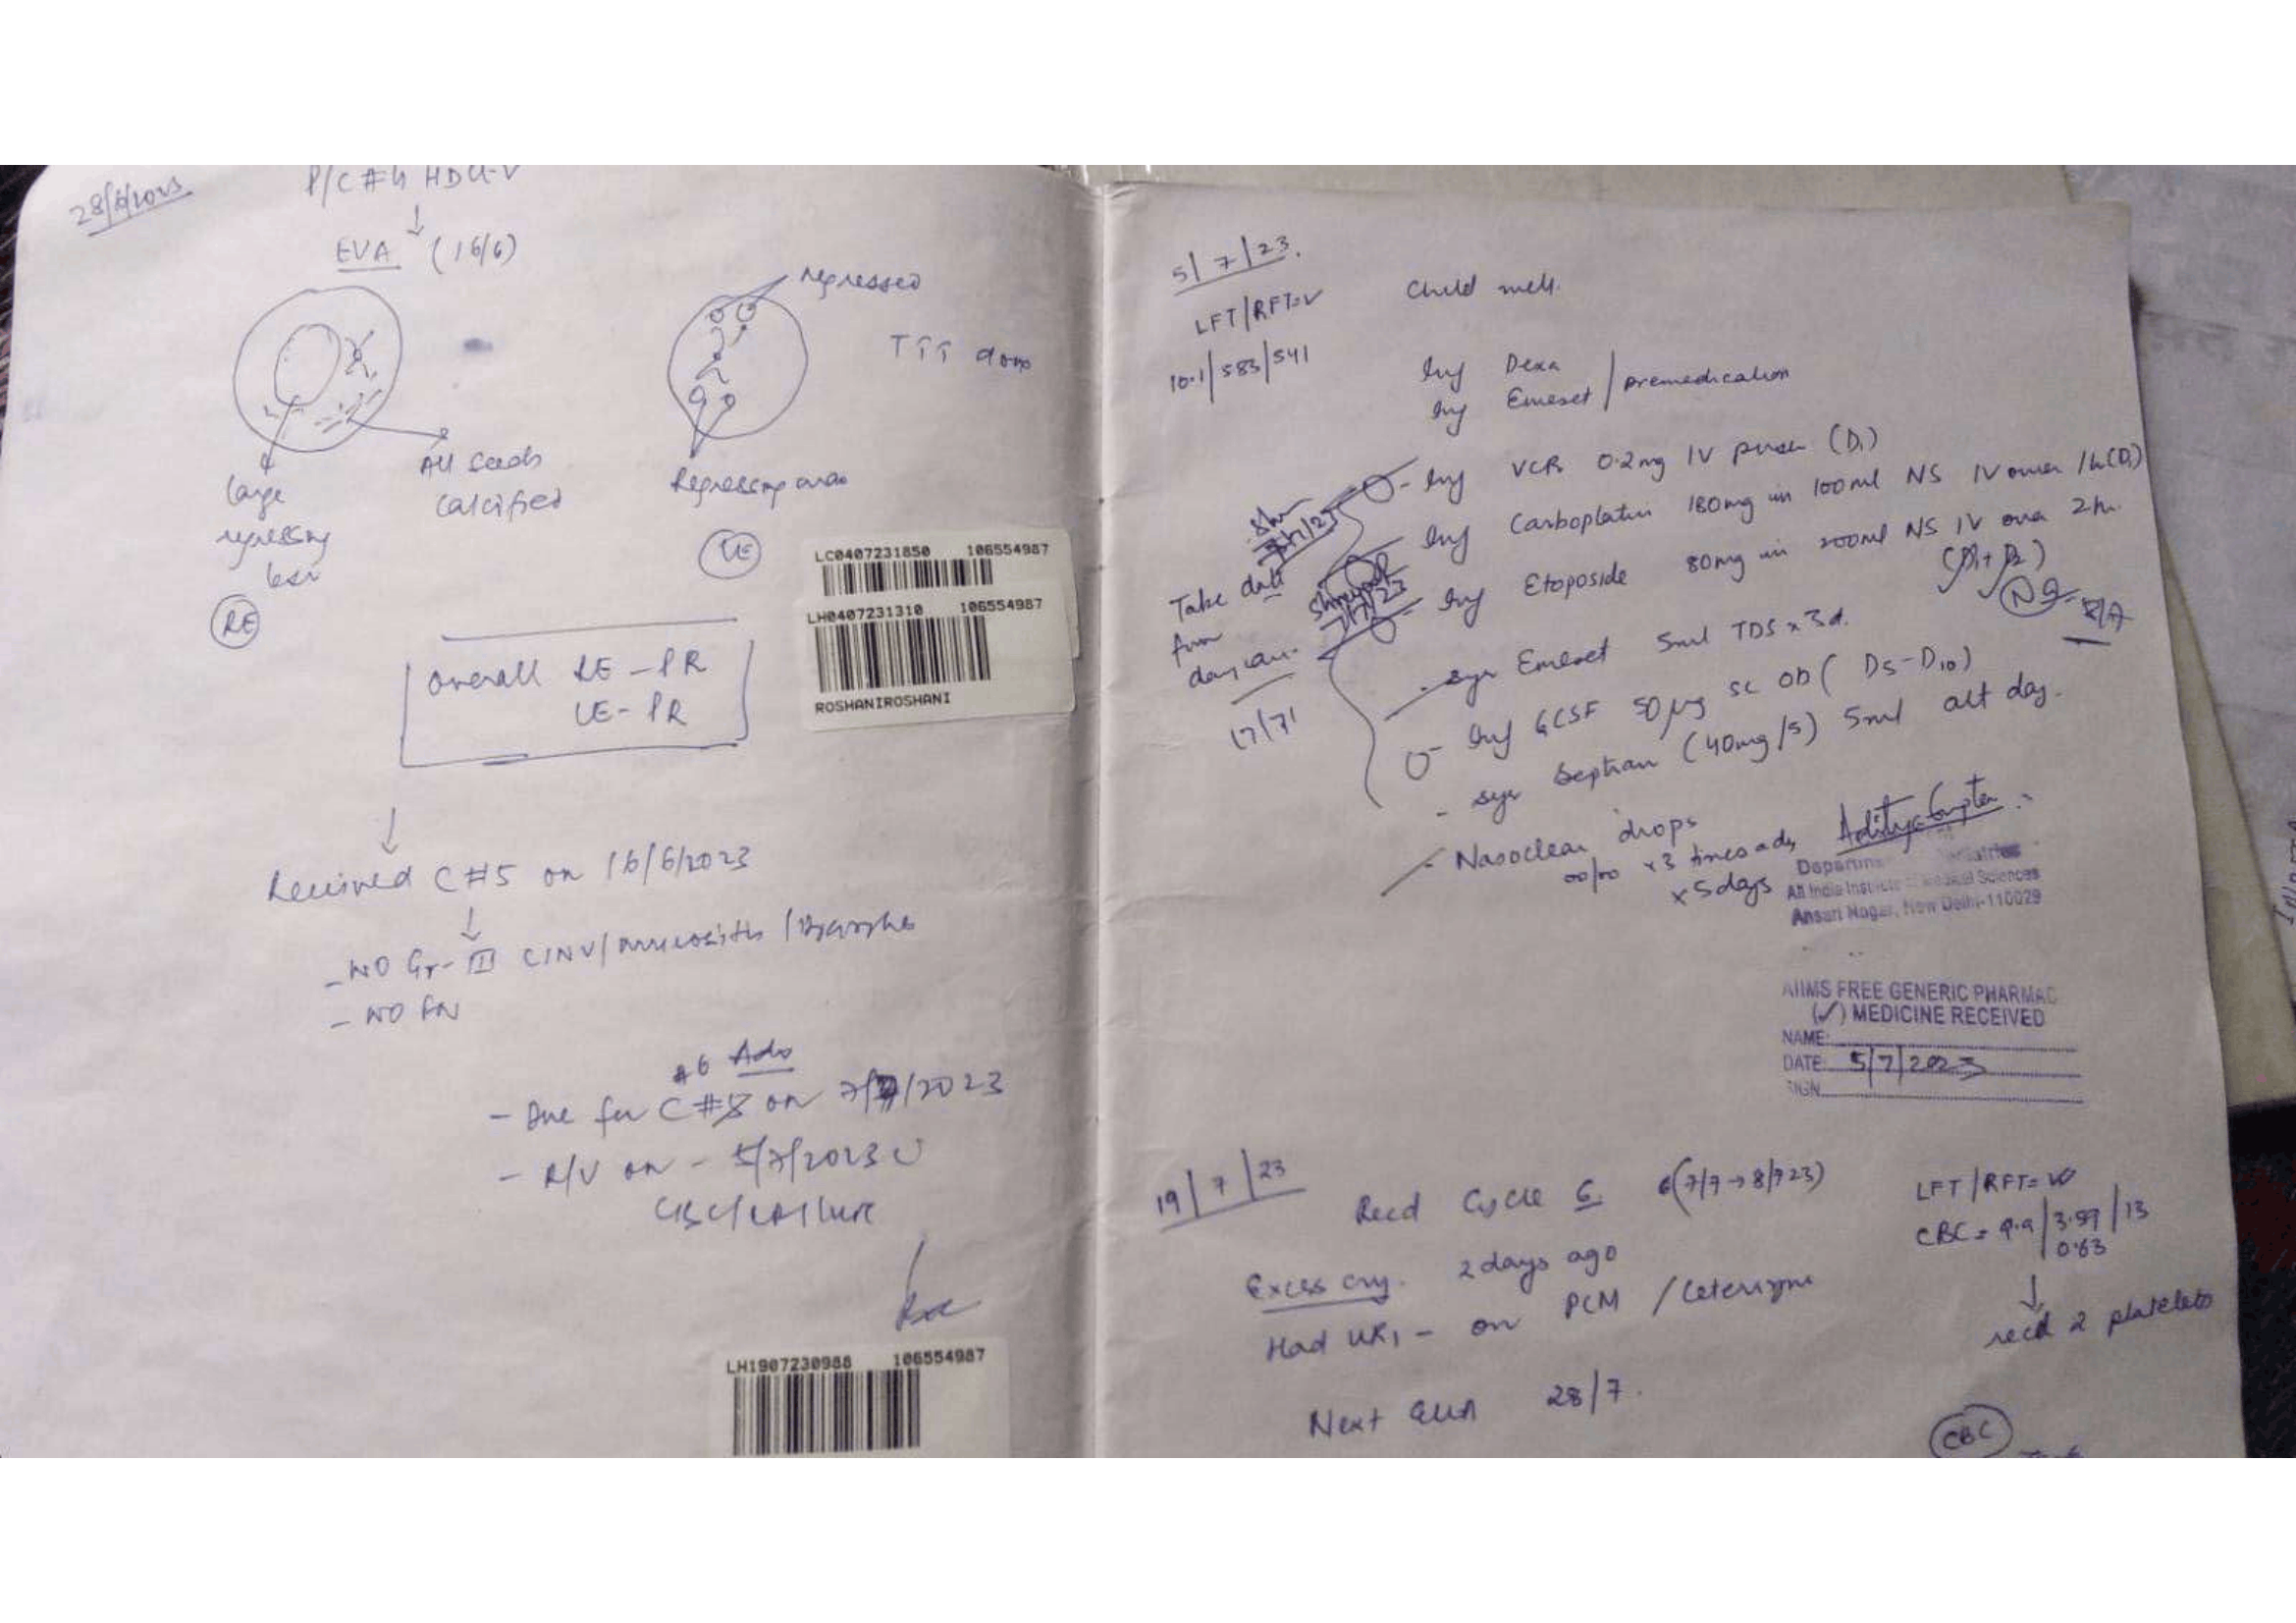 28/6/2023
P/C #4 HDU-V
EUA (16/6)
regressed
TTT done
All seeds
calcified
large
regressing
lesn
Regressing areas
RE
LE
LC0407231850 106554987
LH0407231310 106554987
ROSHANIROSHANI
Overall RE - PR
LE - PR
Received C #5 on 16/6/2023
- NO Gr-III CINV/mucositis/Diarrhea
- NO FN
Adv
#6
- Due for C # on 7/7/2023
- R/V on - 5/7/2023
CBC/LFT/
LH1907230988 106554987
5/7/23.
LFT/RFT=✓
Child well.
10.1/583/541
Inj Dexa
Inj Emeset / premedication
- Inj VCR 0.2mg IV push (D1)
Inj Carboplatin 180mg in 100ml NS IV over 1h (D1)
Inj Etoposide 80mg in 200ml NS IV over 2h.
(D1+D2)
Take date
from
daycare
7/7/23
17/7
- Syr Emeset 5ml TDS x 3d.
- Inj GCSF 50µg SC OD (D5-D10)
- Syr Septran (40mg/5) 5ml alt day.
- Nasoclear drops
x 3 times a day
x 5 days
Aditya Gupta
All India Institute of Medical Sciences
Ansari Nagar, New Delhi-110029
AIIMS FREE GENERIC PHARMAC
(✓) MEDICINE RECEIVED
NAME:
DATE: 5/7/2023
SIGN
19/7/23
Recd Cycle 6 (7/7→8/7/23)
LFT/RFT=
CBC = 9.9/3.59/13
0.63
Excess cry. 2 days ago
recd 2 platelets
Had URI - on PCM /Ceterizine
Next EUA 28/7.
CBC